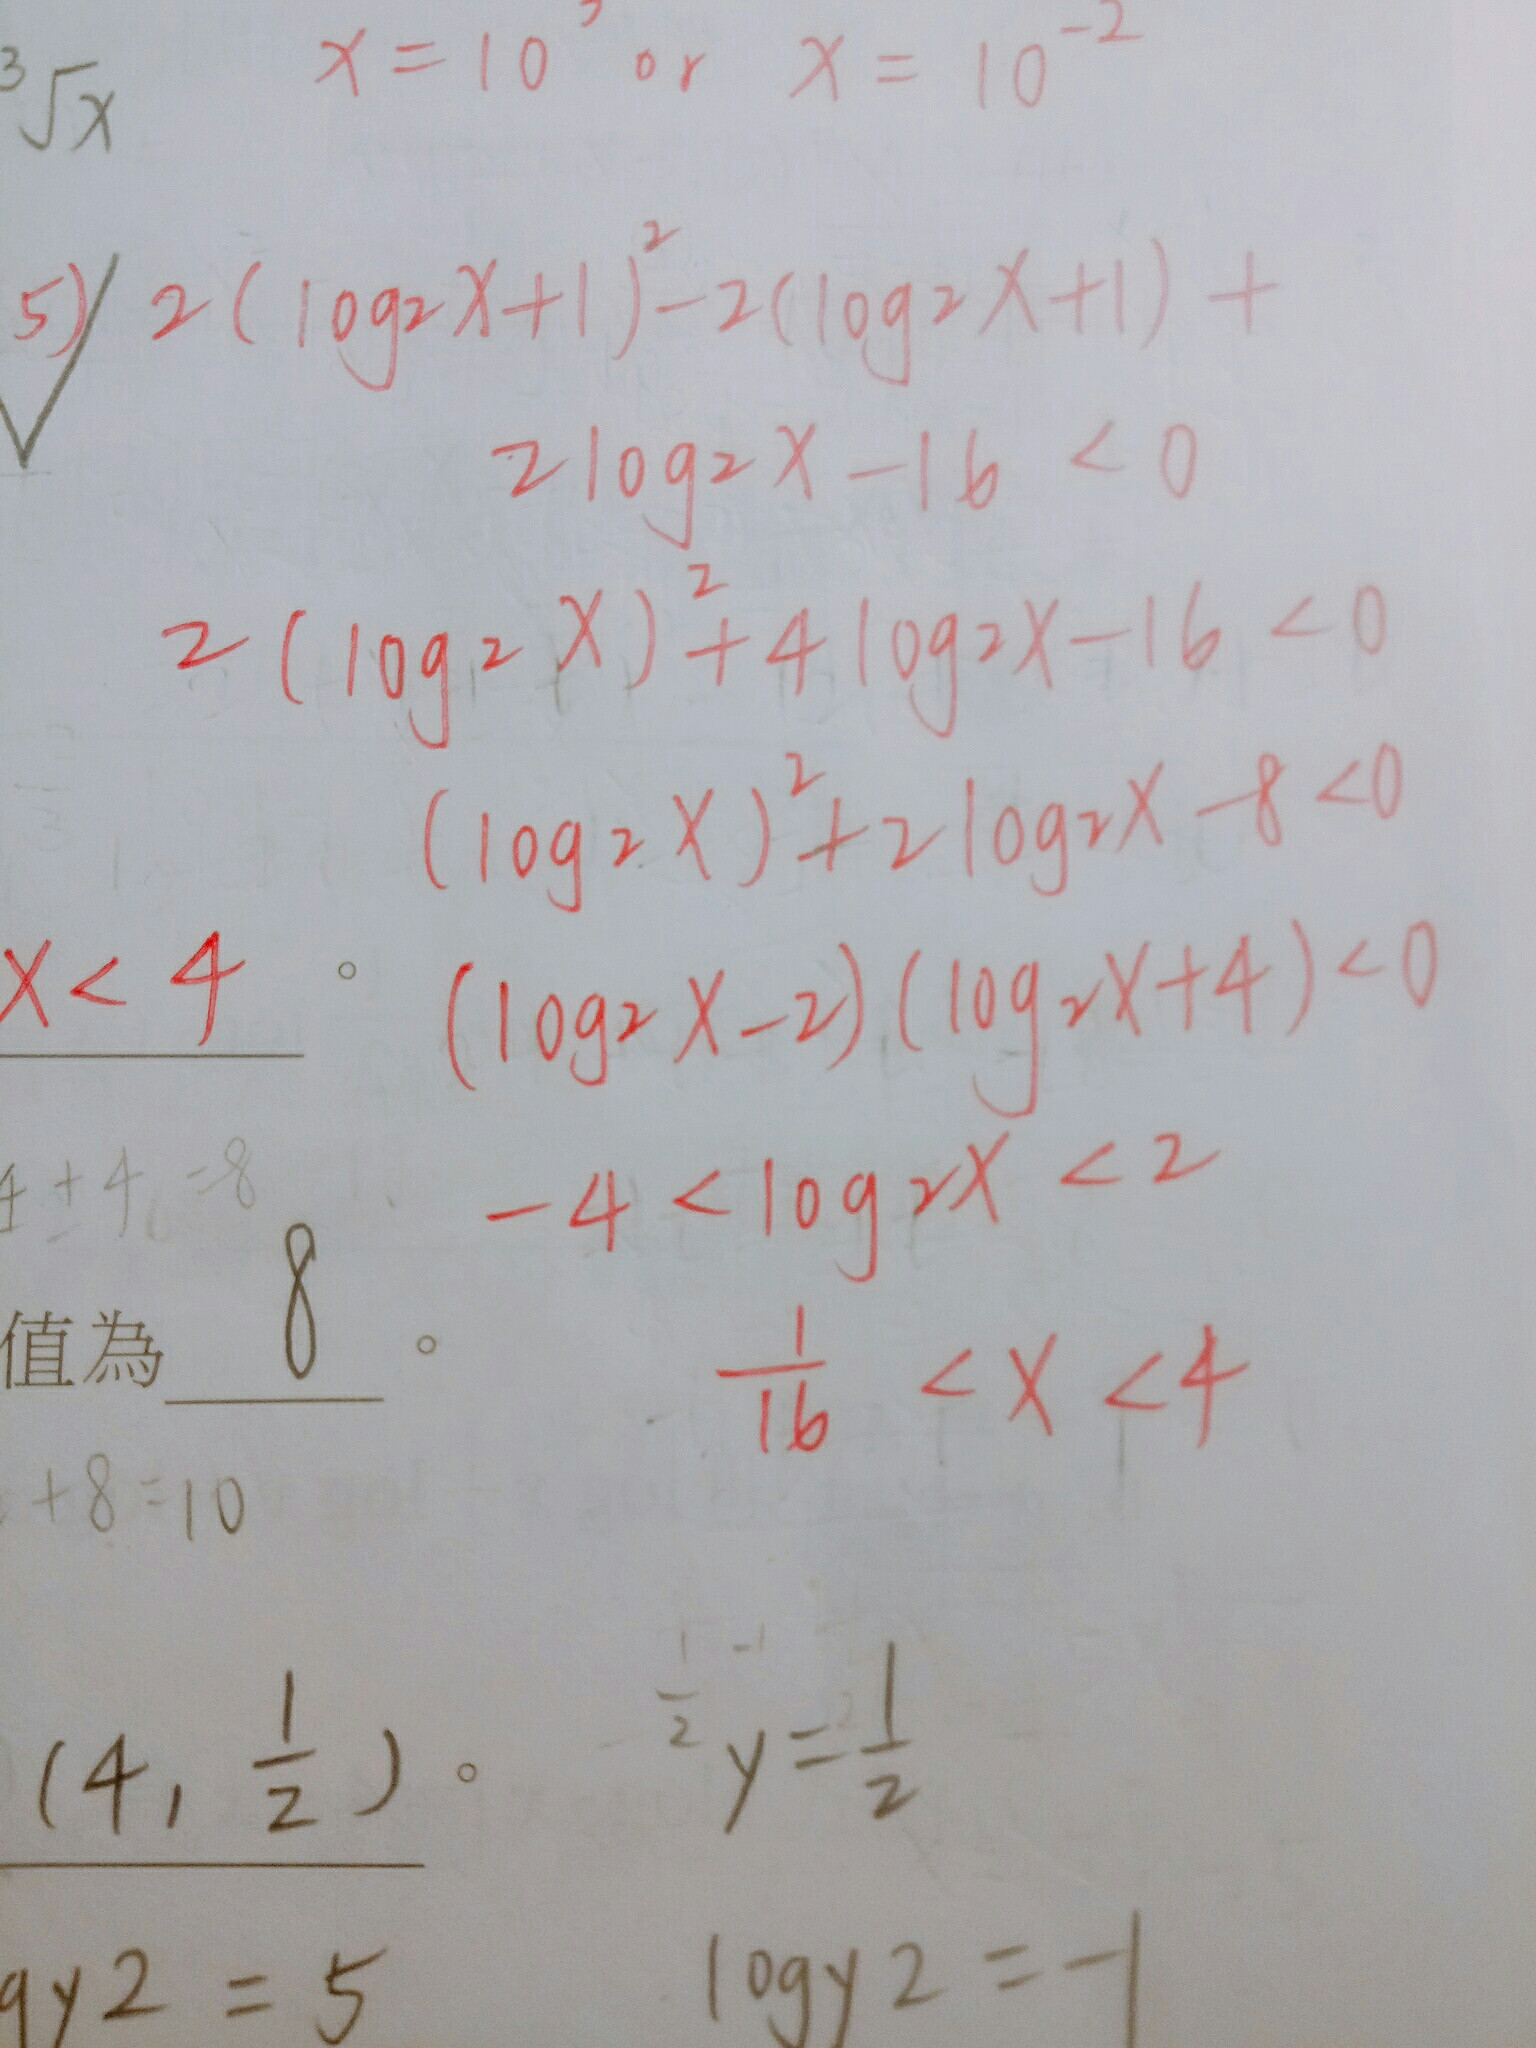 x = 10³ or x = 10⁻²
³√x
5) 2(log₂x+1)²-2(log₂x+1) +
2log₂x-16 < 0
2(log₂x)²+4log₂x-16 < 0
(log₂x)²+2log₂x-8<0
x < 4 。
(log₂x-2)(log₂x+4)<0
4+4 =8
-4 < log₂x < 2
值為 8 。
1/16 < x < 4
+8=10
1/2 -1
(4, 1/2) 。
y=1/2
gy2 = 5
logy2 = -1